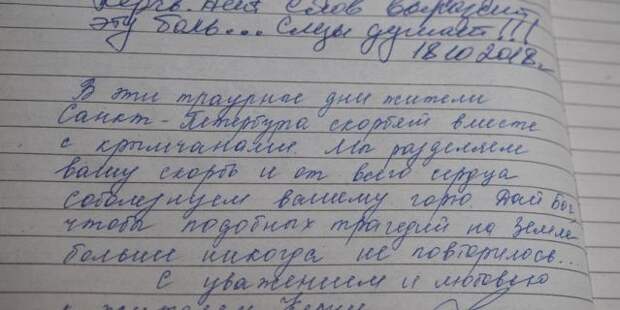 Керчь. Нет слов выразить
эту боль... Слезы душат!!!
18.10.2018г.
В эти траурные дни жители
Санкт-Петербурга скорбят вместе
с крымчанами. Мы разделяем
вашу скорбь и от всего сердца
соболезнуем вашему горю. Дай Бог,
чтобы подобных трагедий на Земле
больше никогда не повторилось..
С уважением и любовью
к жителям Керчи